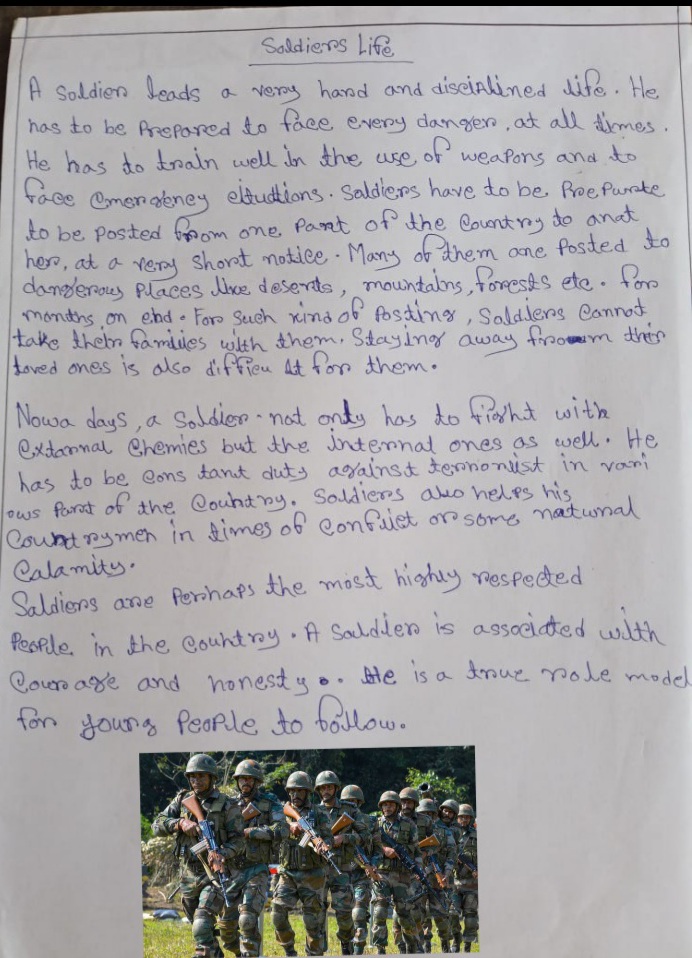 Soldiers Life
A Soldier leads a very hard and disciplined life. He
has to be Prepared to face every danger, at all times.
He has to train well in the use of weapons and to
face emergency eitudtions. Soldiers have to be Preepurate
to be posted from one part of the Country to anot
her, at a very short notice. Many of them are Posted to
dangerous places like deserts, mountains, forests etc. for
months on end. For such kind of Posting, Soldiers Cannot
take their families with them. Staying away from their
loved ones is also difficu lt for them.
Nowa days, a Soldier not only has to fight with
extarnnal enemies but the internal ones as well. He
has to be cons tant duty against terroriist in vari
ous Part of the Country. Soldieres also helps his
Countrymen in times of Conflict or some natural
Calamity.
Soldiers are Perhaps the most highly respected
People in the Country. A Soldier is associated with
Courage and honesty. He is a true role model
for young People to follow.